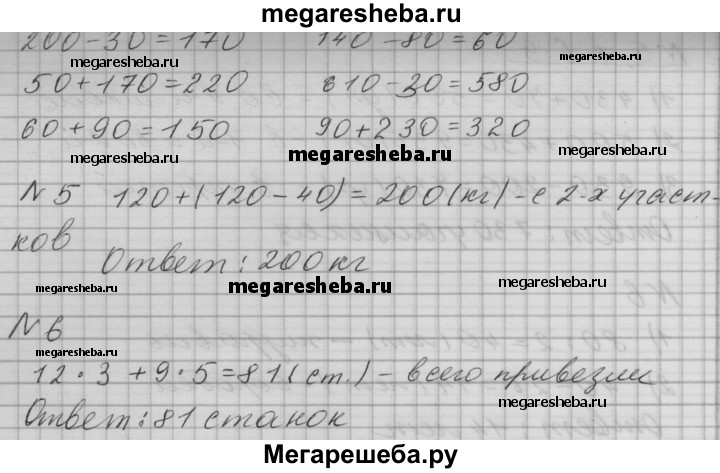 megaresheba.ru
200-30=170 140-80=60
megaresheba.ru megaresheba.ru
50+170=220 610-30=580
megaresheba.ru
60+90=150 90+230=320
megaresheba.ru megaresheba.ru
N5 120+(120-40)=200(кг)-с 2-х участ-
ков
Ответ: 200 кг
megaresheba.ru megaresheba.ru megaresheba.ru
N6
megaresheba.ru
12·3+9·5=81(ст.)-всего привезли
megaresheba.ru
Ответ: 81 станок
megaresheba.ru
Мегарешеба.ру